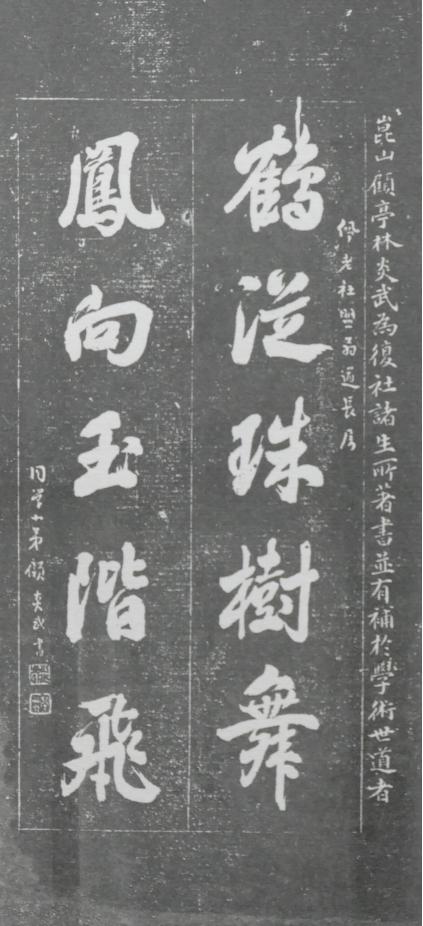 崑山顧亭林炎武為復社諸生所著書並有補於學術世道者
佩老社盟翁道長屬
鶴從珠樹舞
鳳向玉階飛
同學小弟顧炎武書